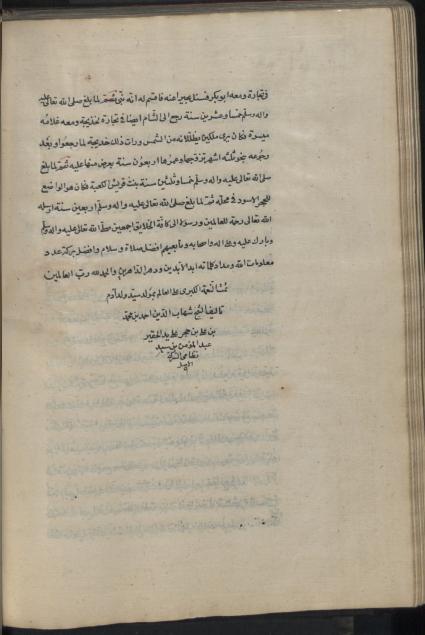 فى تجارة ومعه ابو بكر فسئل بحيرا عنه فاقسم له انه نبى ثم لما بلغ صلى الله تعالى عليه
واله وسلم خمسا وعشرين سنة رجع الى الشام ايضا فى تجارة لخديجة ومعه غلامه
ميسرة فكان يرى ملكين يظللانه من الشمس ورات ذلك خديجة لما رجعوا وبعد
رجوعه بنحو ثلثة اشهر تزوجها وعمرها اربعون سنة بعرض منها عليه ثم لما بلغ
صلى الله تعالى عليه واله وسلم خمسا وثلثين سنة بنت قريش الكعبة فكان هو الواضع
للحجر الاسود فى محله ثم لما بلغ صلى الله تعالى عليه واله وسلم اربعين سنة ارسله
الله تعالى رحمة للعالمين ورسولا الى كافة الخلايق اجمعين صلى الله تعالى عليه واله وسلم
وبارك عليه وعلى اله واصحابه وتابعيهم افضل صلاة وسلام وافضل بركة عدد
معلومات الله ومداد كلماته ابد الابدين ودهر الداهرين والحمد لله رب العالمين
تمت النعمة الكبرى على العالم بمولد سيد ولد ادم
تاليف الشيخ شهاب الدين احمد بن محمد
بن على بن حجر على يد الحقير
عبد المؤمن بن سيد